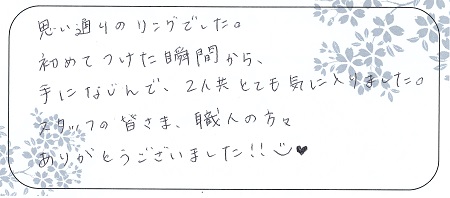 思い通りのリングでした。
初めてつけた瞬間から、
手になじんで、2人共とても気に入りました。
スタッフの皆さま、職人の方々
ありがとうございました!! ☺♥